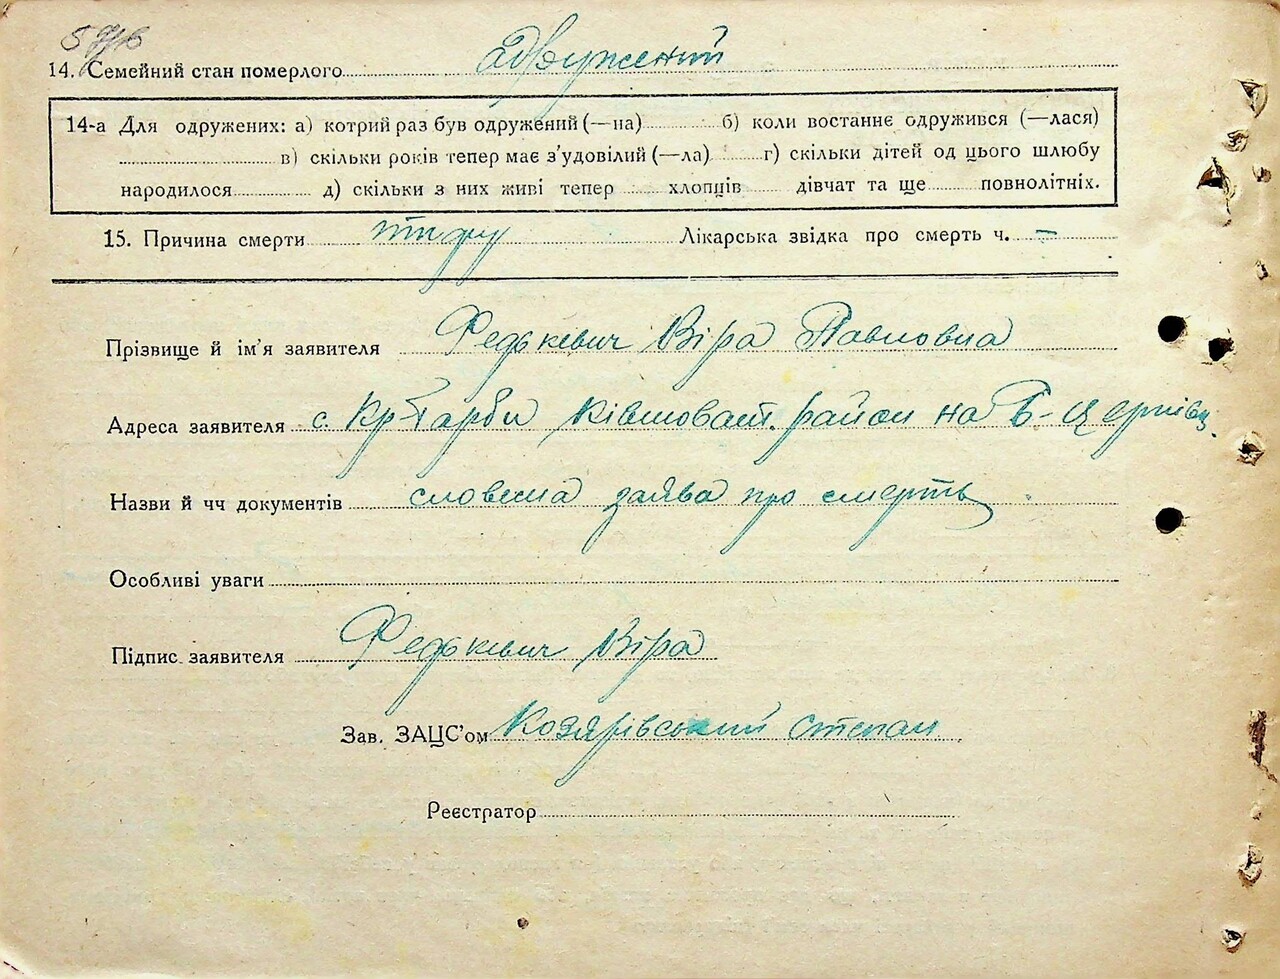 14. Семейний стан померлого одружений
14-а Для одружених: а) котрий раз був одружений (—на) б) коли востаннє одружився (—лася)
в) скільки років тепер має з’удовілий (—ла) г) скільки дітей од цього шлюбу
народилося д) скільки з них живі тепер хлопців дівчат та ще повнолітніх.
15. Причина смерти Лікарська звідка про смерть ч. –
Прізвище й ім’я заявителя Федькевич Віра Павловна
Адреса заявителя с. Ківшоват. район на Б-Церківщ.
Назви й чч документів словесна заява про смерть
Особливі уваги
Підпис заявителя Федькевич Віра
Зав. ЗАЦС’ом Козярівський Степан
Реєстратор